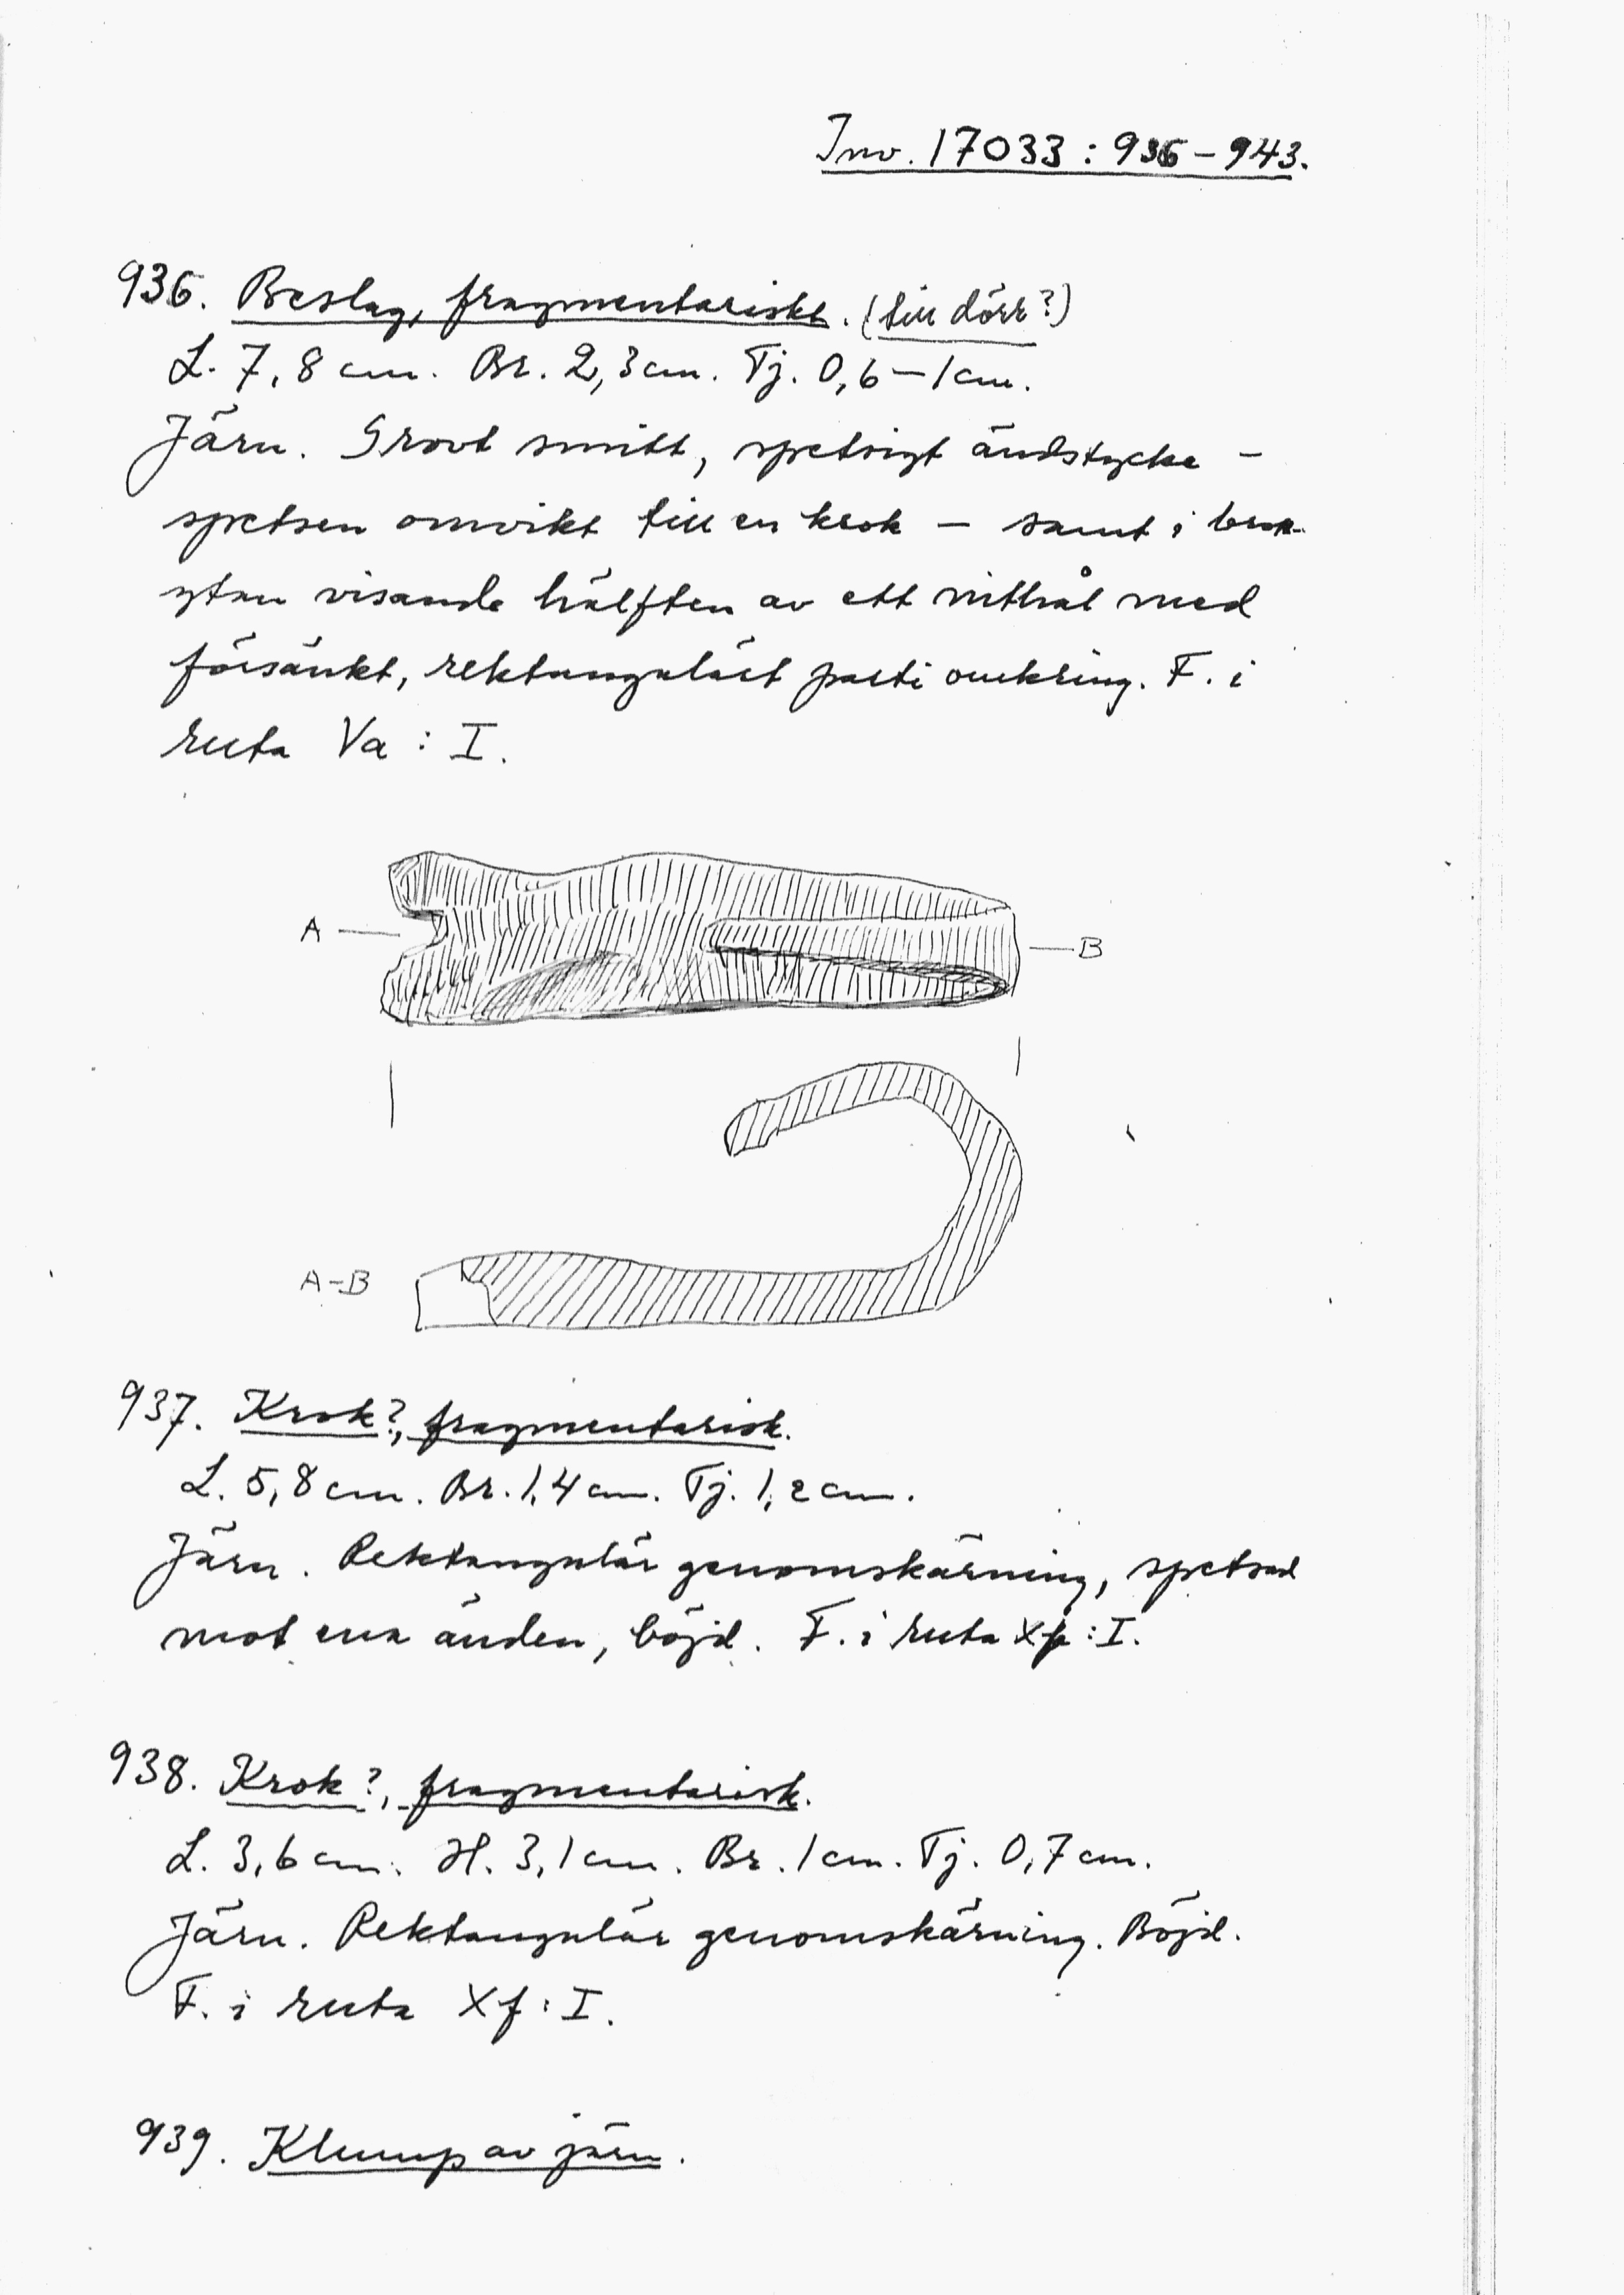 Inv. 17033 : 936 – 943.
936. Beslag, fragmentariskt. (till dörr?)
L. 7,8 cm. Br. 2,3 cm. Tj. 0,6 – 1 cm.
Järn. Grovt smitt, spetsigt ändstycke –
spetsen omvikt till en krok – samt i brott-
ytan visande hälften av ett nithål med
försänkt, rektangulärt parti omkring. F. i
ruta Va : I.
A
B
A-B
937. Krok?, fragmentarisk.
L. 5,8 cm. Br. 1,4 cm. Tj. 1,2 cm.
Järn. Rektangulär genomskärning, spetsad
mot ena änden, böjd. F. i ruta :I.
938. Krok?, fragmentarisk.
L. 3,6 cm. H. 3,1 cm. Br. 1 cm. Tj. 0,7 cm.
Järn. Rektangulär genomskärning. Böjd.
F. i ruta Xf : I.
939. Klump av järn.